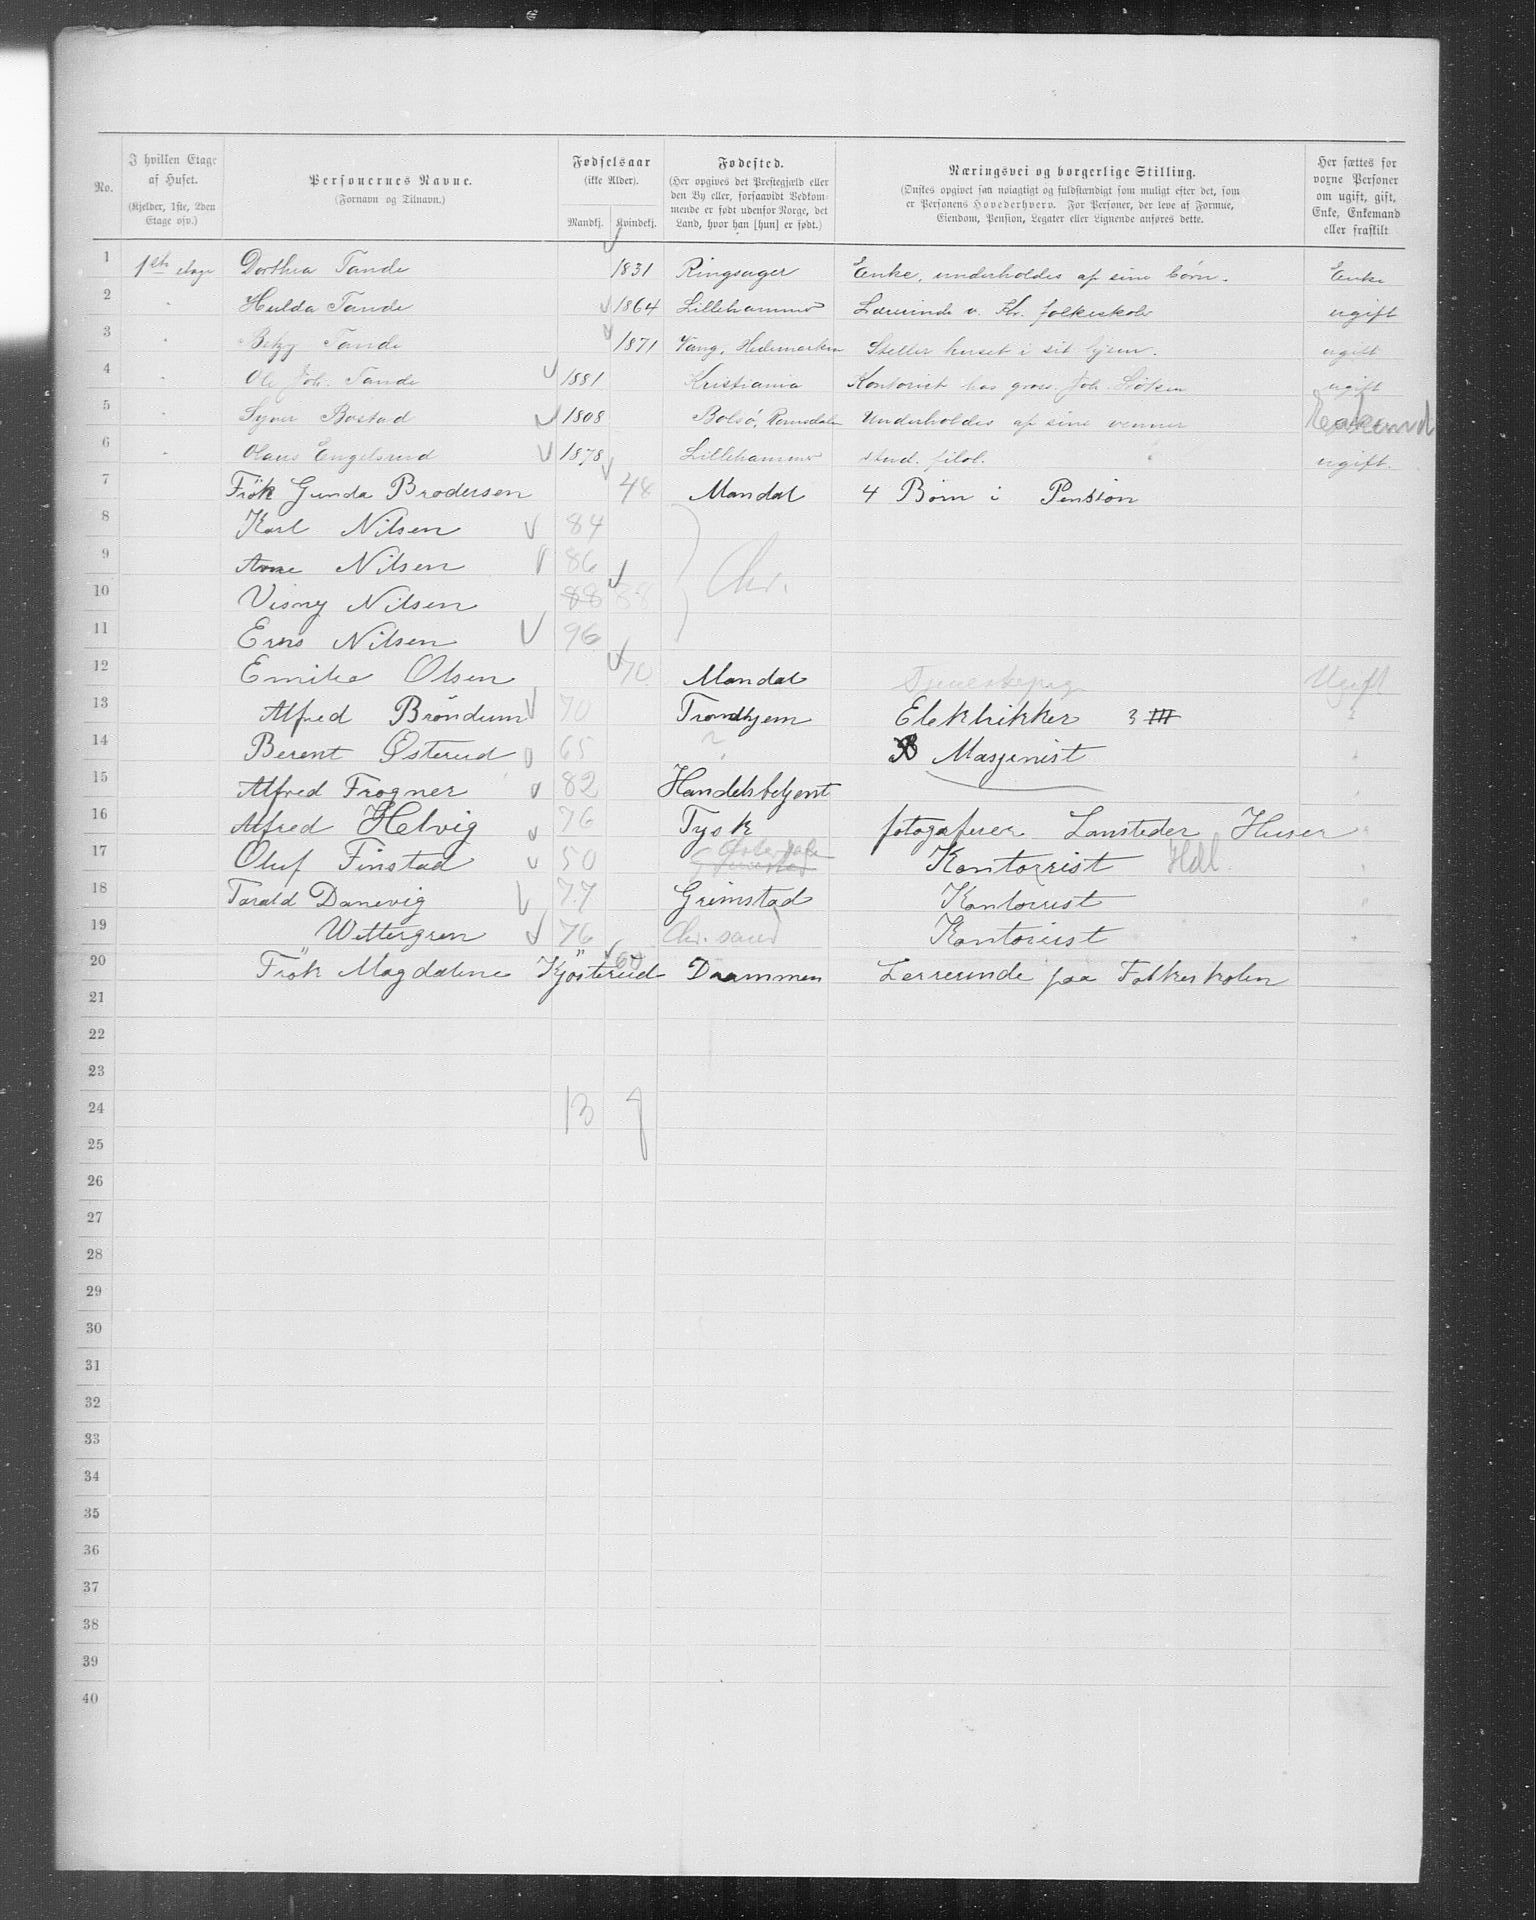 No.
I hvilken Etage
af Huset.
(Kjelder, 1ste, 2den
Etage osv.)
Personernes Navne.
(Fornavn og Tilnavn.)
Fødselsaar
(ikke Alder).
Mandkj. Kvindekj.
Fødested.
(Her opgives det Prestegjæld eller
den By eller, forsaavidt Vedkom-
mende er født udenfor Norge, det
Land, hvor han [hun] er født.)
Næringsvei og borgerlige Stilling.
(Ønskes opgivet saa nøiagtigt og fuldstændigt som muligt efter det, som
er Personens Hovederhverv. For Personer, der leve af Formue,
Eiendom, Pension, Legater eller Lignende anføres dette.
Her sættes for
voxne Personer
om ugift, gift,
Enke, Enkemand
eller fraskilt
1 1ste etage Dorthea Tande 1831 Ringsager Enke, underholdes af sine børn. Enke
2 " Hulda Tande 1864 Lillehammer Lærerinde v. Kr. folkeskole ugift
3 " Betzy Tande 1871 Vang, Hedemarken Steller huset i sit hjem. ugift
4 " Ole Joh. Tande 1881 Kristiania Kontorist hos gross. Joh. ugift
5 " Syver Bostad 1808 Bolsø, Romsdalen Underholdes af sine venner Enkemd
6 " Olaus Engelsrud 1878 Lillehammer stud. filol. ugift.
7 Frök Gunda Brodersen 48 Mandal 4 Børn i Pension
8 Karl Nilsen 84
9 Arne Nilsen 86 Chr.
10 Visny Nilsen 88 88
11 Nilsen 96
12 Emilie Olsen 70 Mandal Tjenestepige Ugift
13 Alfred Bröndum 70 Trondhjem Elektrikker 3 "
14 Berent Østerud 65 " Masjenist "
15 Alfred Frogner 82 Handelsbetjent "
16 Alfred Helvig 76 Tysk fotograferer Lansteder Huser "
17 Oluf Finstad 50 Østerdalen Kontorrist Hdl. "
18 Tarald Danevig 77 Grimstad Kontorrist "
19 Wettergren 76 Chr. sand Kontorist "
20 Frök Magdalene Kjösterud 60 Drammen Lærerinde paa Folkeskolen
21
22
23
24 13 7
25
26
27
28
29
30
31
32
33
34
35
36
37
38
39
40